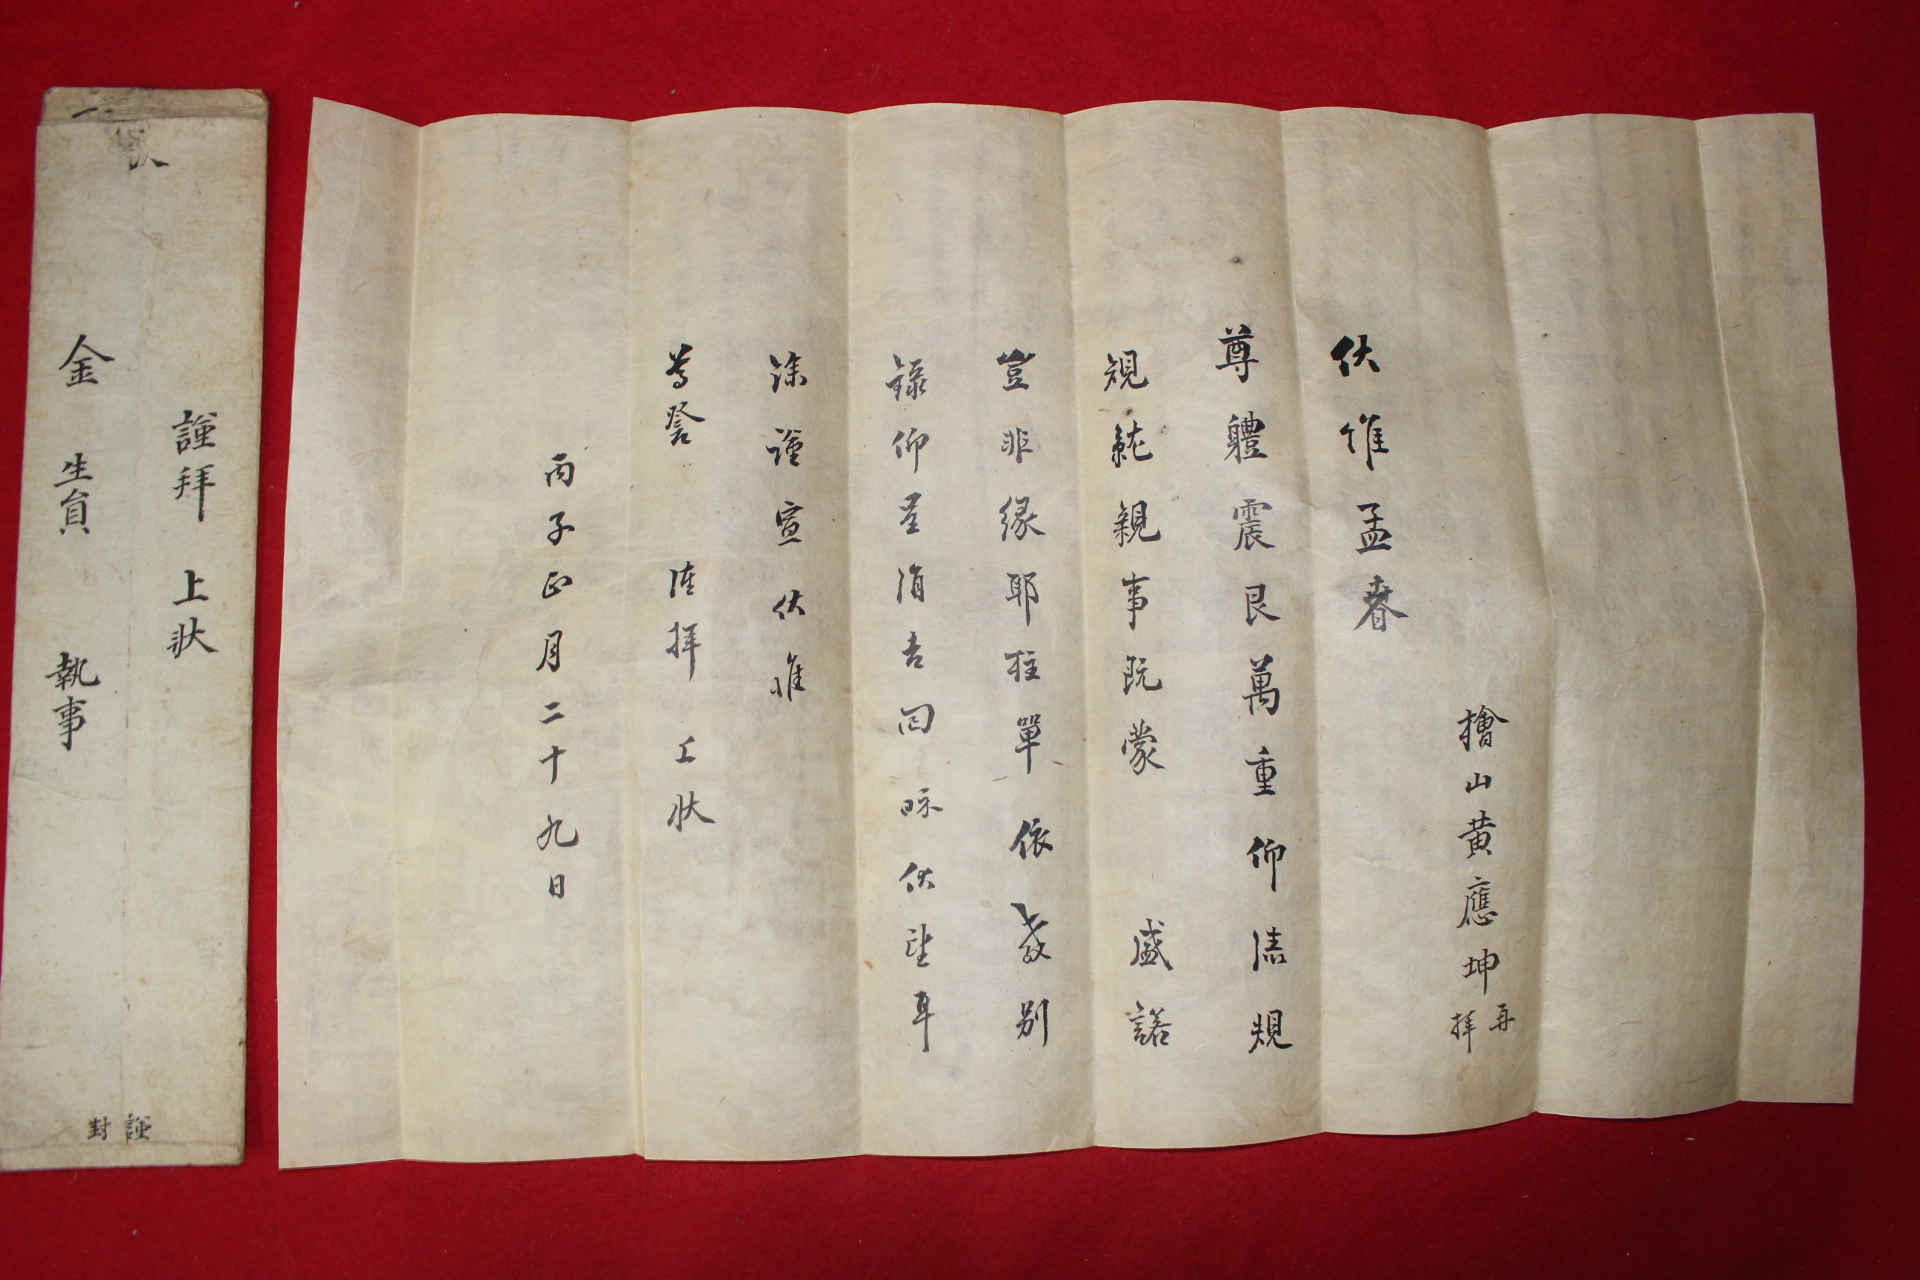 檜山黃應坤再拜
伏惟孟春
尊體震艮萬重仰溸規
規就親事旣蒙 盛諾
豈非緣耶柱單依教別
錄仰呈涓吉回眎伏望耳
餘謹宣伏惟
尊詧 謹拜 上狀
丙子正月二十九日
謹拜 上狀
金 生員 執事
謹封